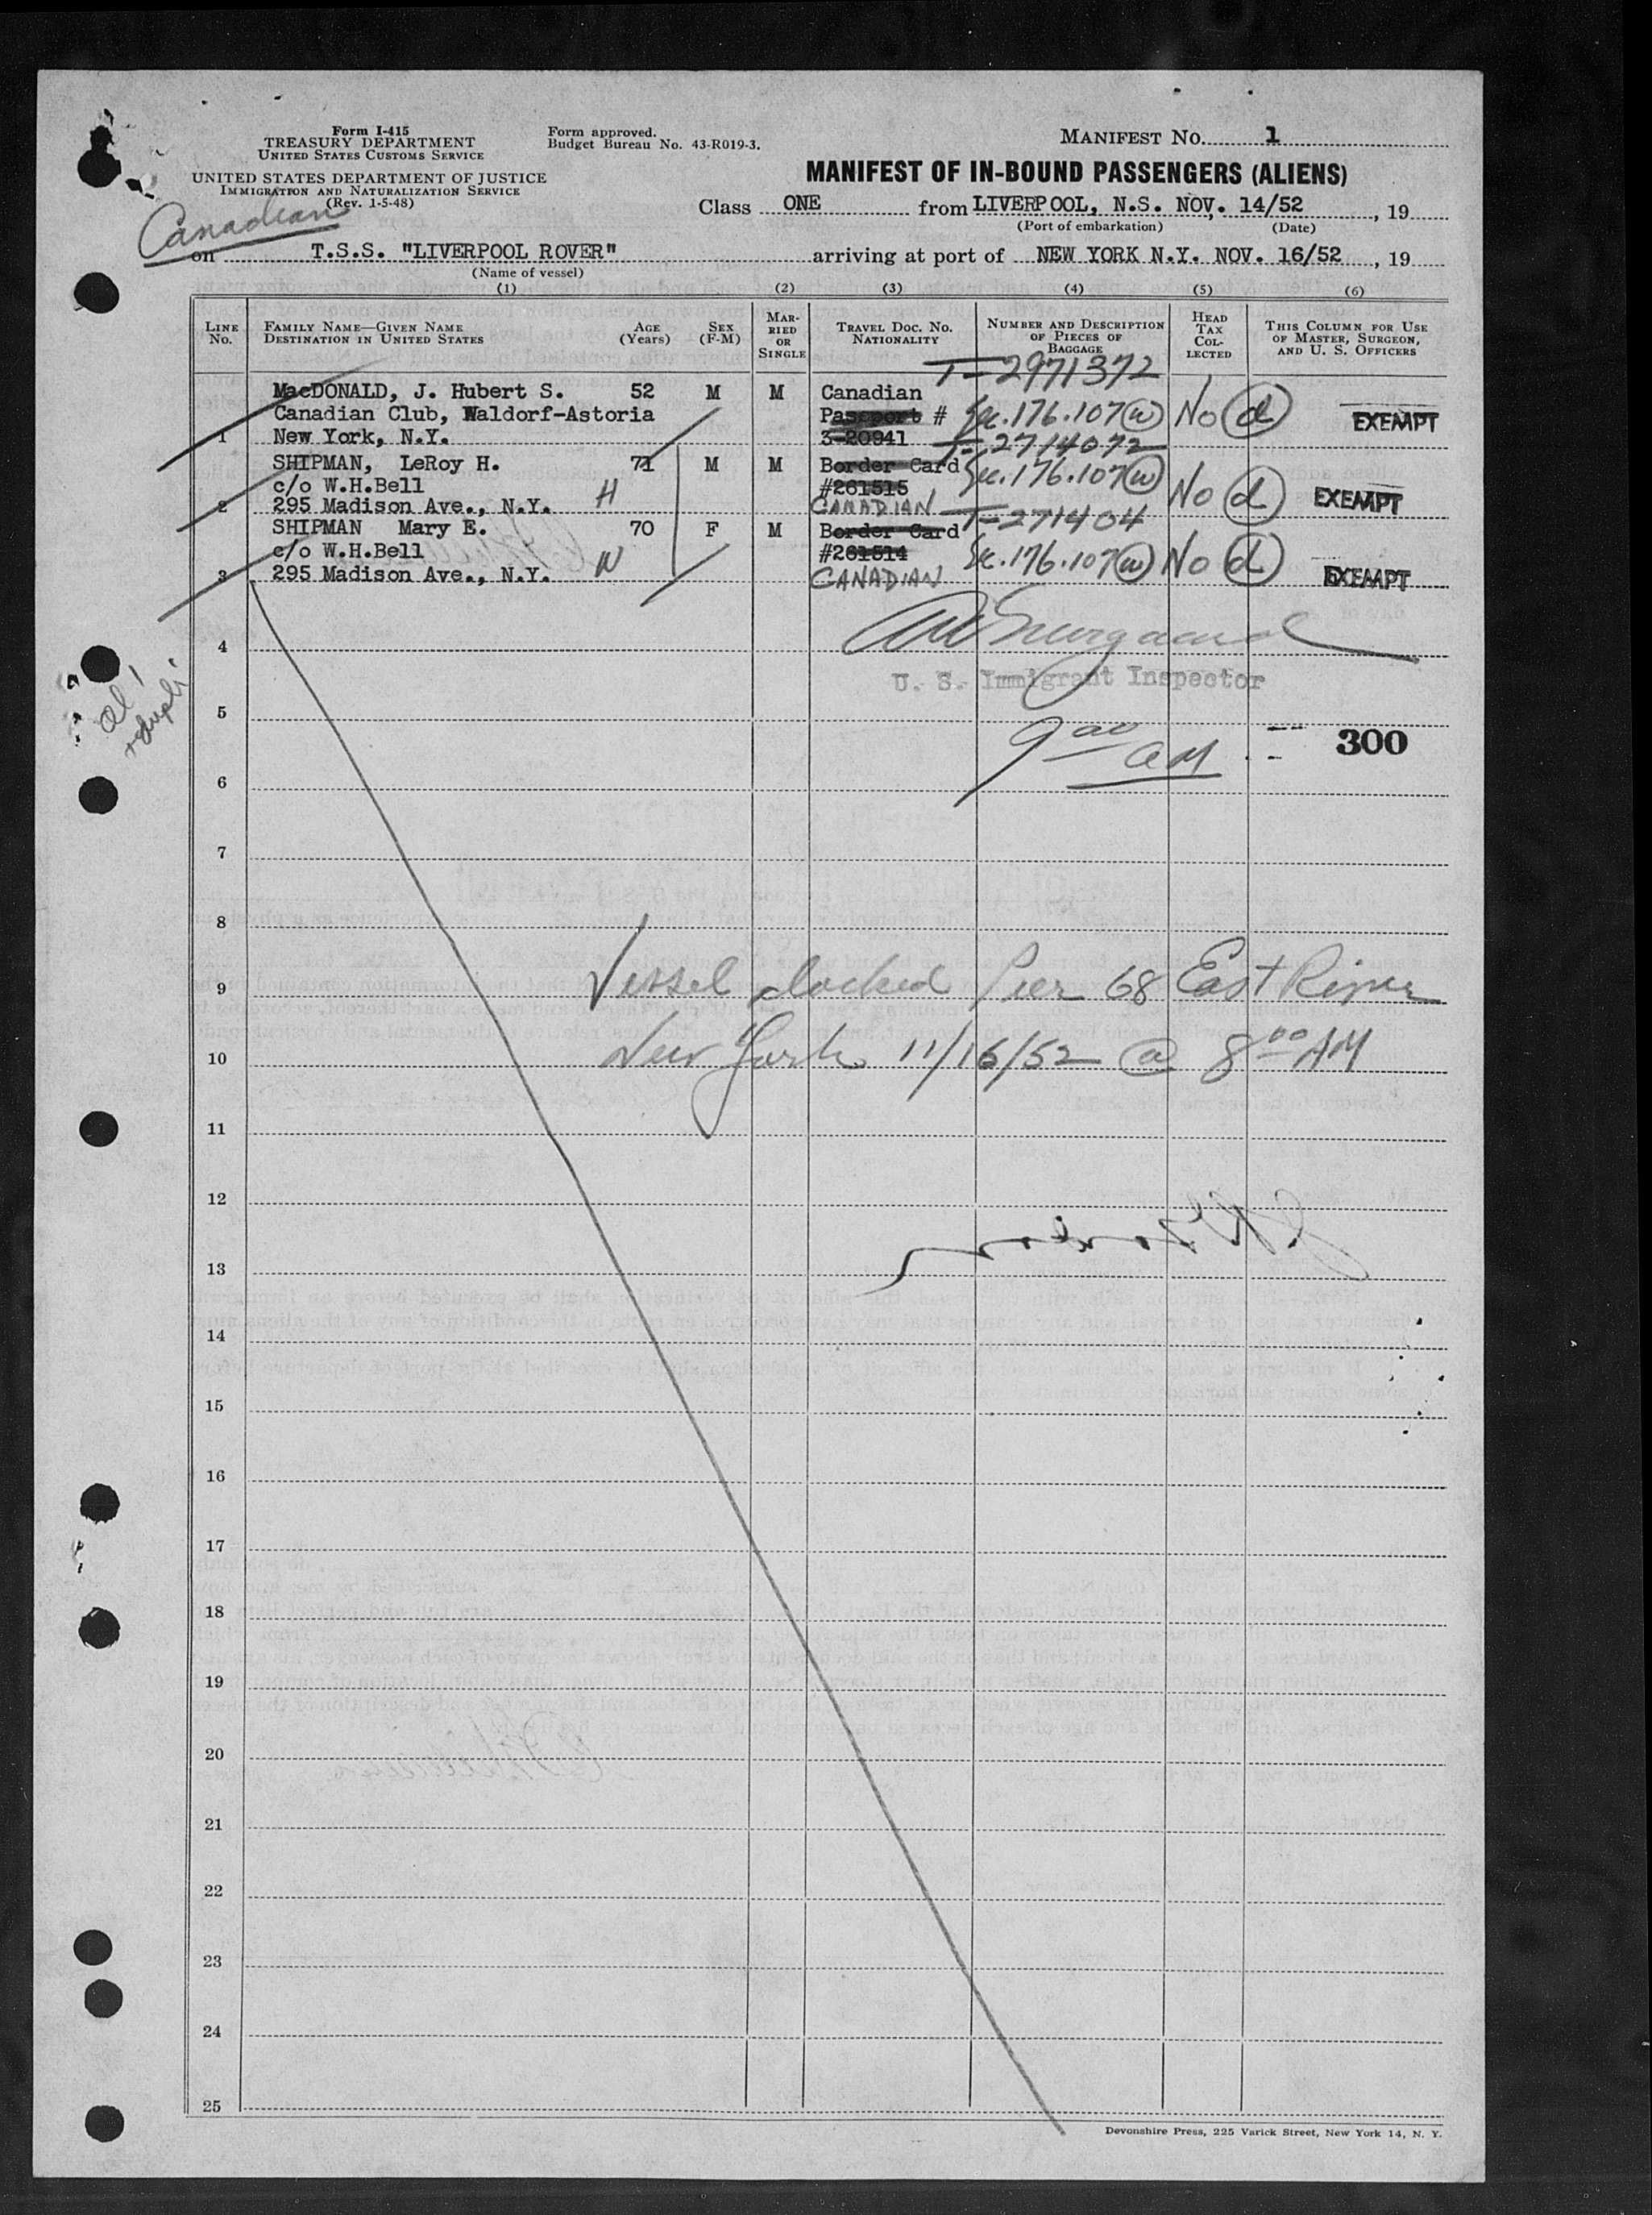 Form I-415
TREASURY DEPARTMENT
UNITED STATES CUSTOMS SERVICE
UNITED STATES DEPARTMENT OF JUSTICE
IMMIGRATION AND NATURALIZATION SERVICE
(Rev. 1-5-48)
Form approved.
Budget Bureau No. 43-R019-3.
MANIFEST No. 1
MANIFEST OF IN-BOUND PASSENGERS (ALIENS)
Class ONE from LIVERPOOL, N.S. NOV. 14/52, 19
(Port of embarkation) (Date)
Canadian
on T.S.S. "LIVERPOOL ROVER" arriving at port of NEW YORK N.Y. NOV. 16/52, 19
(Name of vessel)
(1) (2) (3) (4) (5) (6)
LINE No. FAMILY NAME—GIVEN NAME DESTINATION IN UNITED STATES AGE (Years) SEX (F-M) MARRIED OR SINGLE TRAVEL DOC. NO. NATIONALITY NUMBER AND DESCRIPTION OF PIECES OF BAGGAGE HEAD TAX COLLECTED THIS COLUMN FOR USE OF MASTER, SURGEON, AND U. S. OFFICERS
T-2971372
MacDONALD, J. Hubert S. 52 M M Canadian
Canadian Club, Waldorf-Astoria Passport # Sec.176.107(w) No (d) EXEMPT
1 New York, N.Y. 3-20941 T-2714072
SHIPMAN, LeRoy H. 71 M M Border Card Sec.176.107(w)
c/o W.H.Bell H #261515 No (d) EXEMPT
2 295 Madison Ave., N.Y. CANADIAN T-271404
SHIPMAN Mary E. 70 F M Border Card
c/o W.H.Bell W #261514 Sec.176.107(w) No (d) EXEMPT
3 295 Madison Ave., N.Y. CANADIAN
4
U. S. Immigrant Inspector
5
9 00 AM 300
6
7
8
9 Vessel docked Pier 68 East River
10 New York 11/16/52 @ 8 00 AM
11
12
13
14
15
16
17
18
19
20
21
22
23
24
25
Devonshire Press, 225 Varick Street, New York 14, N. Y.